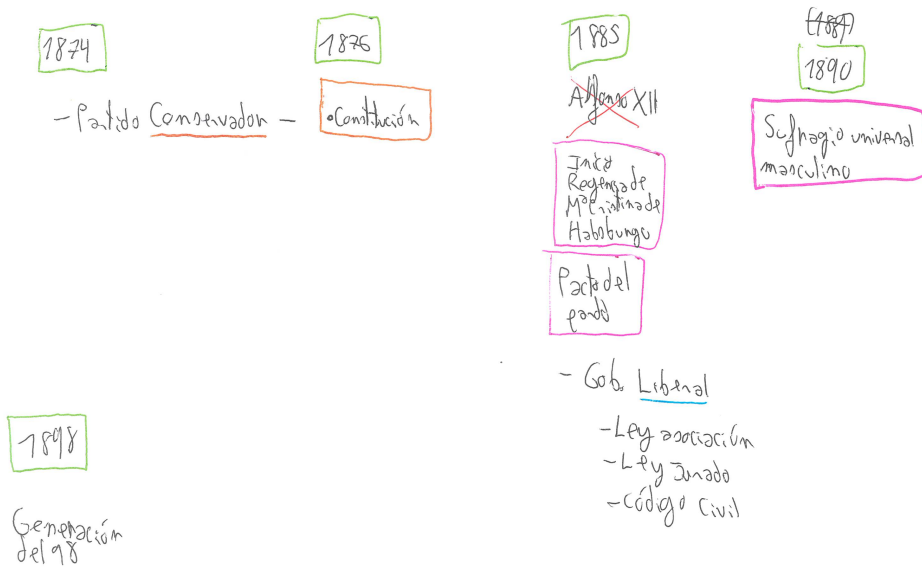 1874
- Partido Conservador -
1876
• Constitución
1885
Alfonso XII
Inicio
Regencia de
Mª Cristina de
Habsburgo
Pacto del
pardo
- Gob. Liberal
- Ley asociación
- Ley Jurado
- Código Civil
(1887)
1890
Sufragio universal
masculino
1898
Generación
del 98